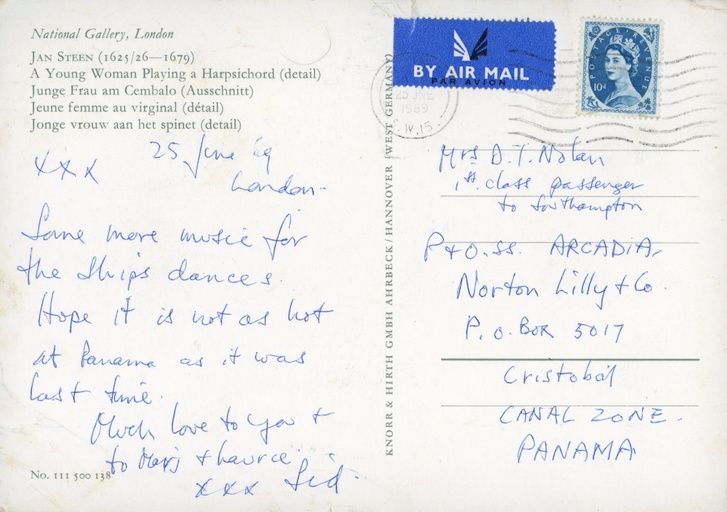 National Gallery, London
JAN STEEN (1625/26—1679)
A Young Woman Playing a Harpsichord (detail)
Junge Frau am Cembalo (Ausschnitt)
Jeune femme au virginal (détail)
Jonge vrouw aan het spinet (detail)
xxx
25 June 69
London-
Some more music for
the ships dances.
Hope it is not as hot
at Panama as it was
last time.
Much love to you +
to Marj + Laurie.
xxx Sid.
No. 111 500 138
KNORR & HIRTH GMBH AHRBECK/HANNOVER (WEST GERMANY)
BY AIR MAIL
PAR AVION
POSTAGE REVENUE
10d
1969
S.W.15
Mrs D. T. Nolan
1st class passenger
to Southampton
P+O. SS. ARCADIA,
Norton Lilly + Co.
P.O. Box 5017
Cristobal
CANAL ZONE.
PANAMA